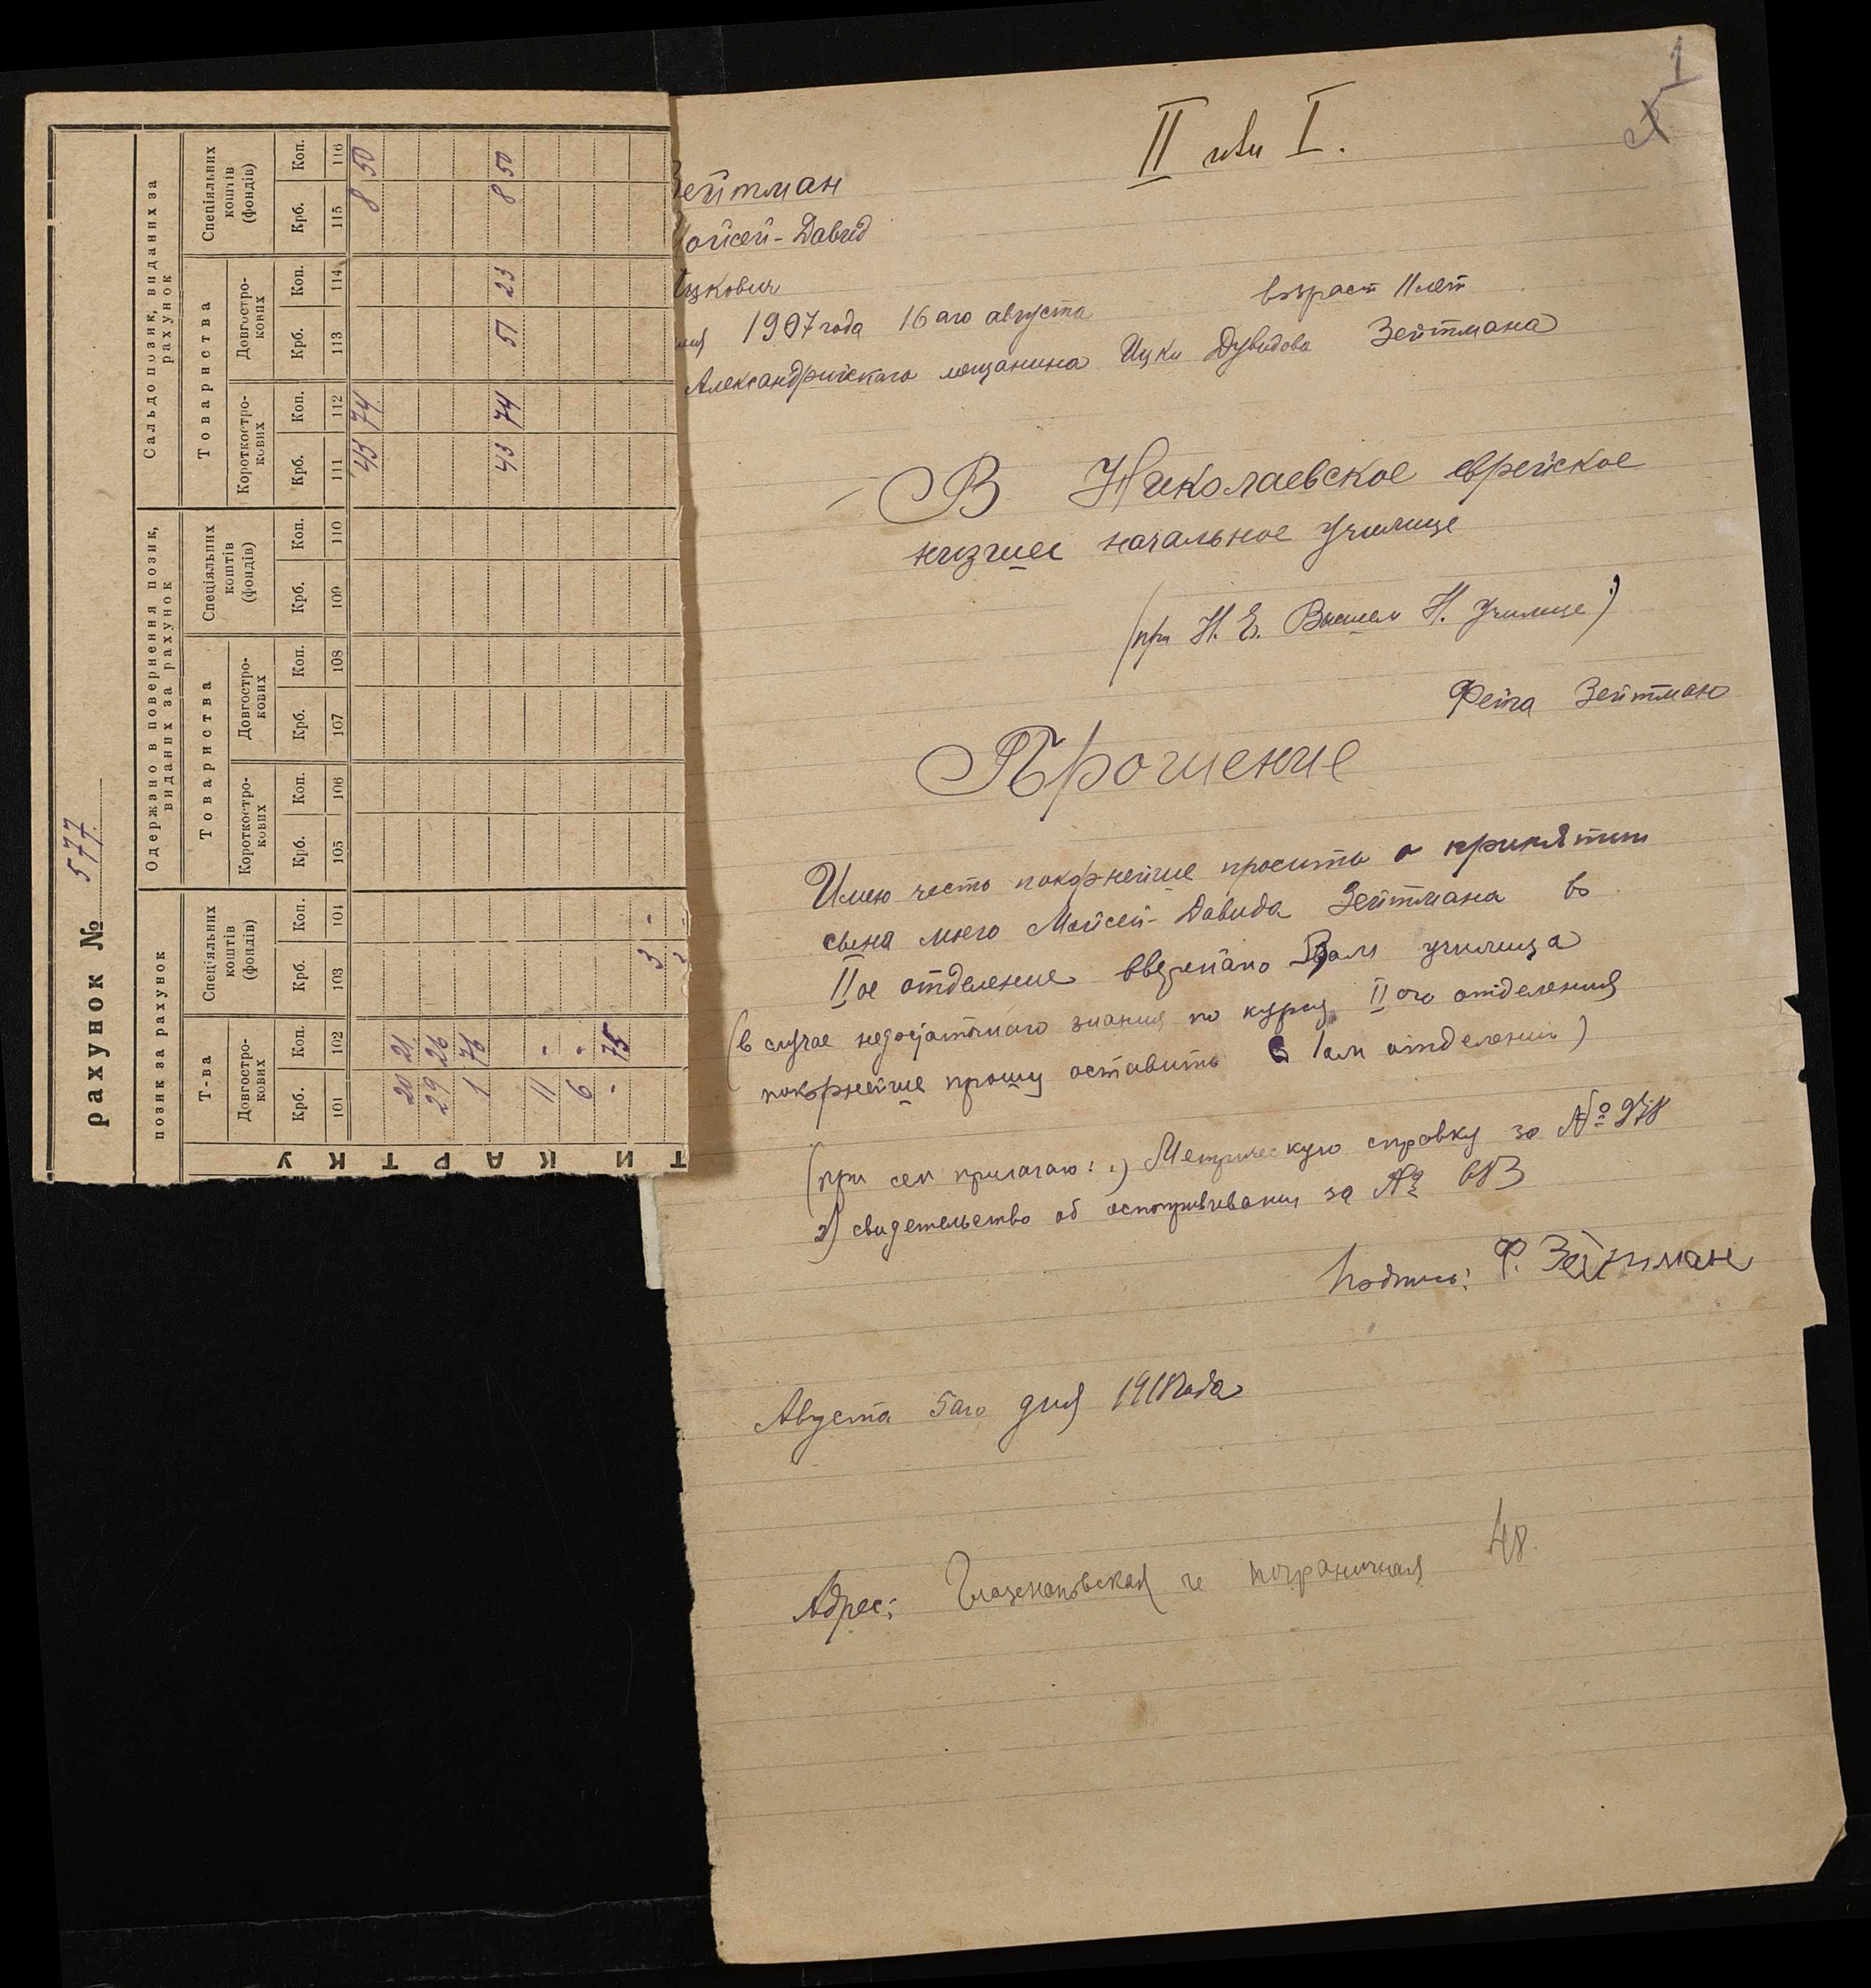 1
II или I.
Зейтман
Мойсей-Давид
Ицкович
1907 года 16 аго августа возраст 11 лет
Александрийскаго мещанина Ицки Дувидова Зейтмана
В Николаевское еврейское
низшее начальное училище
(при Н. Е. Высшем Н. Училище)
Фейга Зейтман
Прошение
Имею честь покорнейше просить о принятии
сына моего Мойсей-Давида Зейтмана во
II ое отделение вверенаго Вам училища
(в случае недостаточнаго знания по курсу II ого отделения
покорнейше прошу оставить в I ом отделении)
(при сем прилагаю: 1) Метрическую справку за № 278
2) свидетельство об оспопрививании за № 683
Подпись: Ф. Зейтман
Августа 5 аго дня 1918 года
Адрес: Глазенаповская и Пограничная 48
рахунок № 577
позик за рахунок
Одержано в повернення позик,
виданих за рахунок
Сальдо позик, виданих за
рахунок
Т-ва
Спеціяльних
коштів
(фондів)
Товариства
Спеціяльних
коштів
(фондів)
Товариства
Спеціяльних
коштів
(фондів)
Довгостро-
кових
Короткостро-
кових
Довгостро-
кових
Короткостро-
кових
Довгостро-
кових
Крб. Коп. Крб. Коп. Крб. Коп. Крб. Коп. Крб. Коп. Крб. Коп. Крб. Коп. Крб. Коп.
101 102 103 104 105 106 107 108 109 110 111 112 113 114 115 116
43 74 8 50
20 21
29 26
1 76
43 74 51 23 8 50
11 -
6 -
- 75
3 -
КАРТКУ